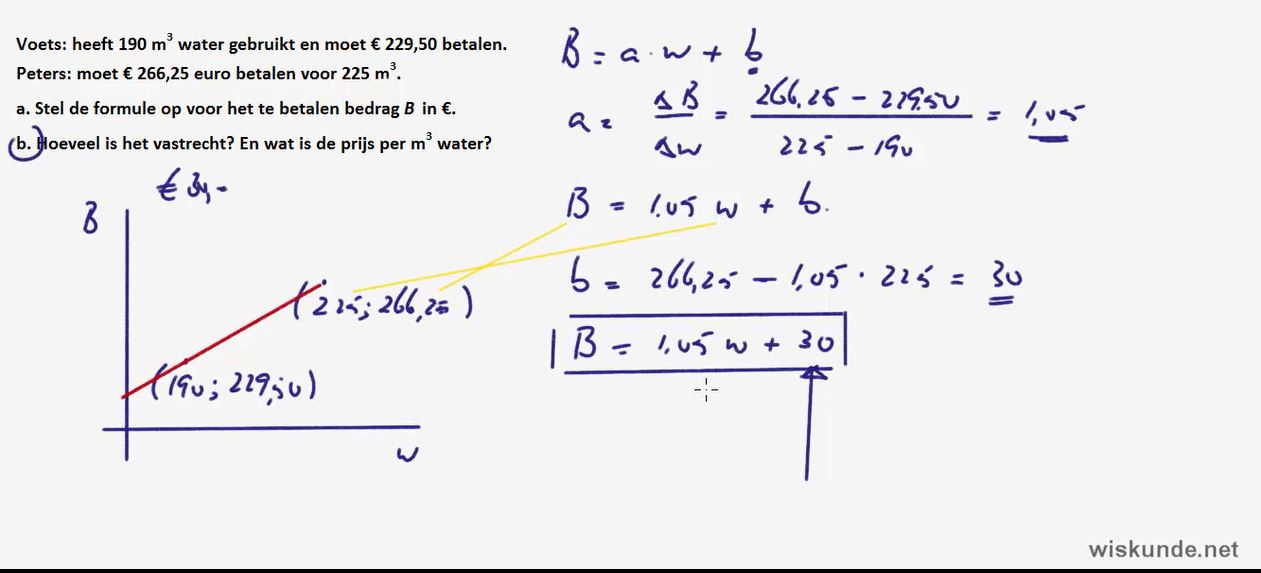 Voets: heeft 190 m³ water gebruikt en moet € 229,50 betalen.
Peters: moet € 266,25 euro betalen voor 225 m³.
a. Stel de formule op voor het te betalen bedrag B in €.
b. Hoeveel is het vastrecht? En wat is de prijs per m³ water?
€ 30,-
B
(225; 266,25)
(190; 229,50)
w
B = a · w + b
a = ΔB / Δw = (266,25 − 229,50) / (225 − 190) = 1,05
B = 1,05 w + b.
b = 266,25 − 1,05 · 225 = 30
B = 1,05 w + 30
wiskunde.net